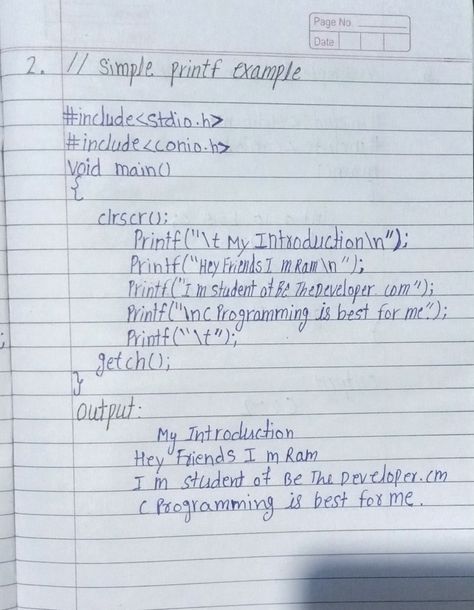 Page No.
Date
2. // Simple printf example
#include<stdio.h>
#include<conio.h>
void main()
{
clrscr();
Printf("\t My Introduction\n");
Printf("Hey Friends I m Ram\n");
Printf("I m student of Be TheDeveloper.com");
Printf("\nC Programming is best for me.");
Printf("\t");
getch();
}
Output:
My Introduction
Hey Friends I m Ram
I m student of Be The Developer.cm
C Programming is best for me.